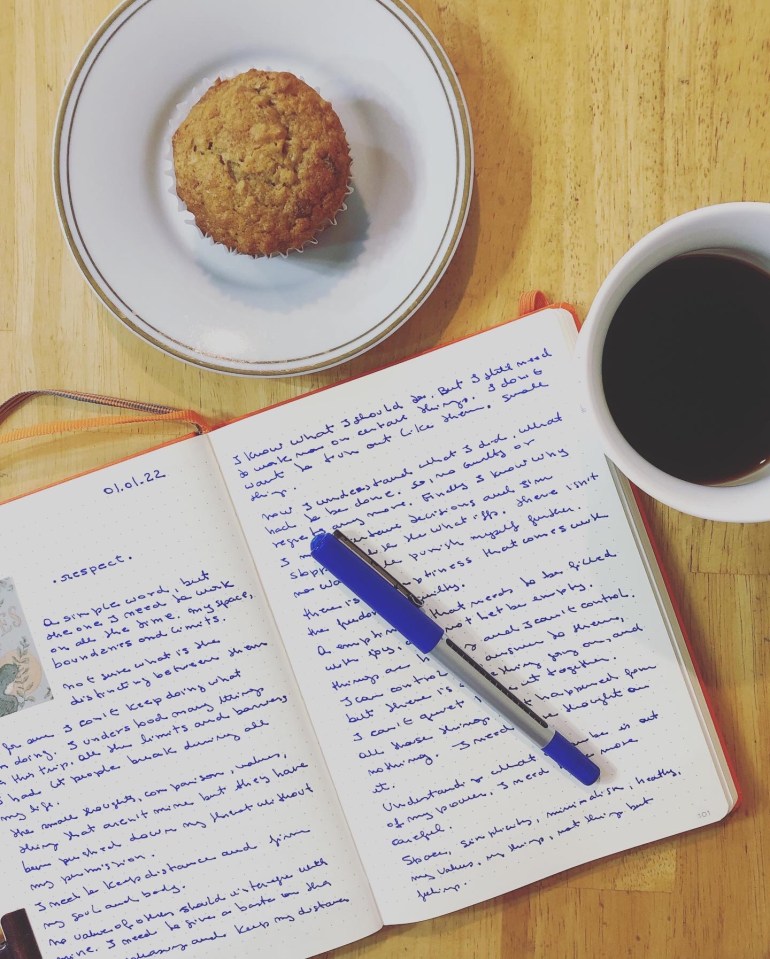 01.01.22
.respect.
A simple word, but
the one I need to work
on all the time. My space,
boundaries and limits.
Not sure what is the
distracting between them
for me. I can't keep doing what
doing. I understood many things
this trip. All the limits and
had let people break during all
my life.
The small thoughts, comparison, values,
thing that aren't mine but they have
been pushed down my throat without
my permission.
I need to keep distance and firm
my soul and body.
No value of others should interfere with
mine. I need to give a on the
and keep my distance
I know what I should do. But I still need
to work more on certain things. I don't
want to turn out like them. Small
thing.
Now I understand what I did, what
had to be done. So, no guilty or
regrets any more. Finally I know why
I decisions and I'm
the what ifs. There isn't
no way punish myself further.
there is happiness that comes with
the guilty.
A that needs to be filled
with joy, not let be empty.
things are and I can't control.
I can control answer to them,
but there is thing going on, and
I can't together.
all those things happened from
nothing. I need thought on
it.
Understand what is out
of my power. I need more
careful.
Space, simplicity, minimalism, healthy,
my values, my things, not things but
feelings.
101